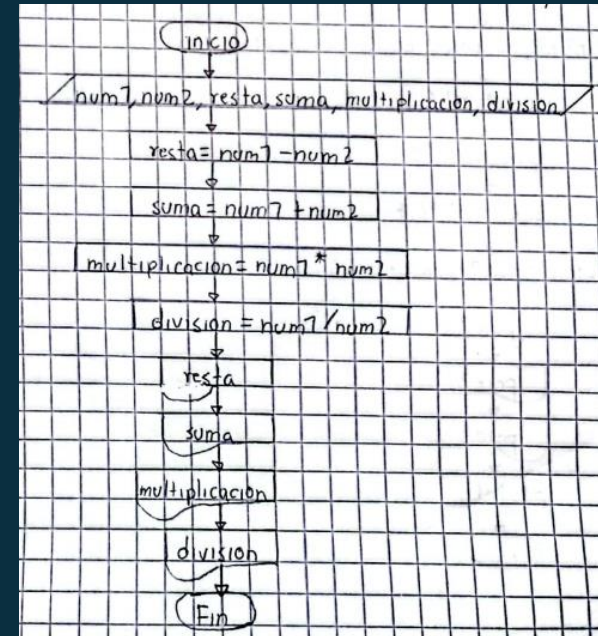 inicio
num1, num2, resta, suma, multiplicacion, division
resta = num1 - num2
suma = num1 + num2
multiplicacion = num1 * num2
division = num1 / num2
resta
suma
multiplicacion
division
Fin